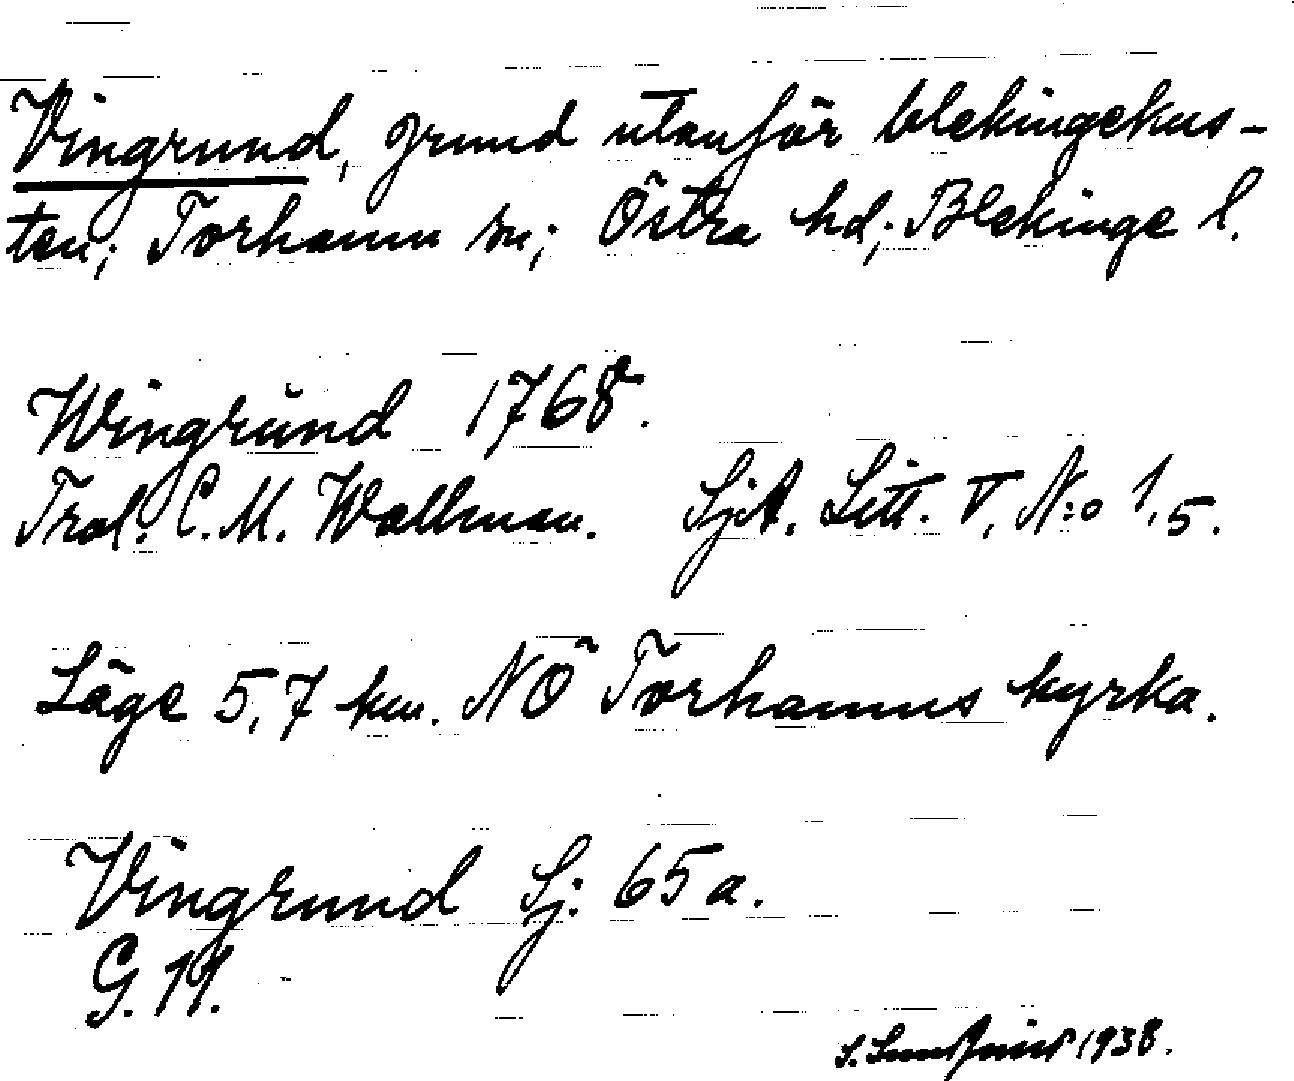 Vingrund, grund utanför blekingekus-
ten; Torhamn sn; Östra hd; Blekinge l.
Wingrŭnd 1768.
Trol. C. M. Wallman. SjA. Litt. V, N:o 1,5.
Läge 5,7 km. NÖ Torhamns kyrka.
Vingrund Sj: 65 a.
G. 11.
S. 1938.